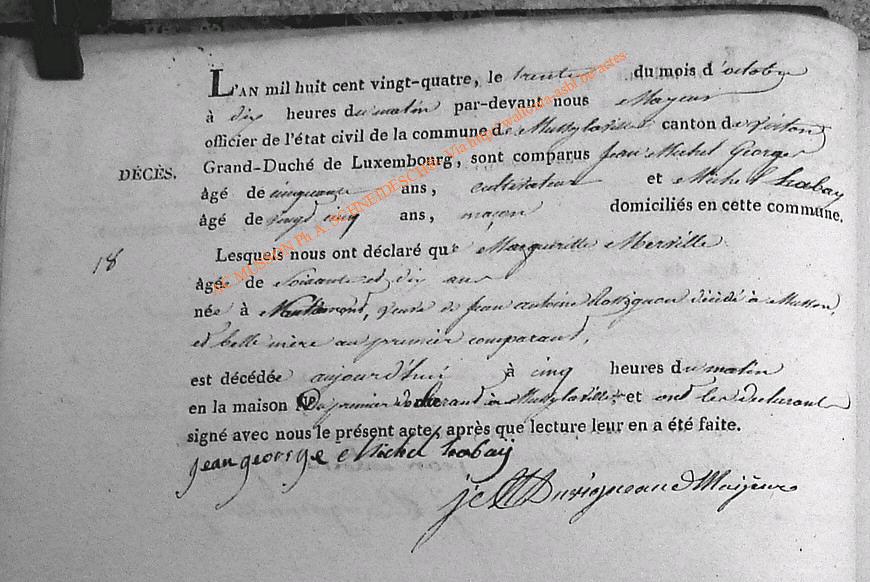 L'AN mil huit cent vingt-quatre, le trente du mois d'octobre
à dix heures du matin par-devant nous Mayeur
officier de l'état civil de la commune de Mussy la ville canton de virton
Grand-Duché de Luxembourg, sont comparus Jean Michel George
DÉCÈS.
âgé de cinquante ans, cultivateur et Michel habay
âgé de vingt cinq ans, maçon domiciliés en cette commune.
18
Lesquels nous ont déclaré que Marguerite Merville
âgée de Soixante et dix ans
née à veuve de Jean antoine décédé à Musson,
et belle mère au premier comparant,
est décédée aujourd'hui à cinq heures du matin
en la maison du premier à Mussy la ville et ont les declarants
signé avec nous le présent acte, après que lecture leur en a été faite.
jean george Michel habay
Duvigneaud Mayeur
AC MUSSON Ph A. SCHNEIDESCH Via http://www.